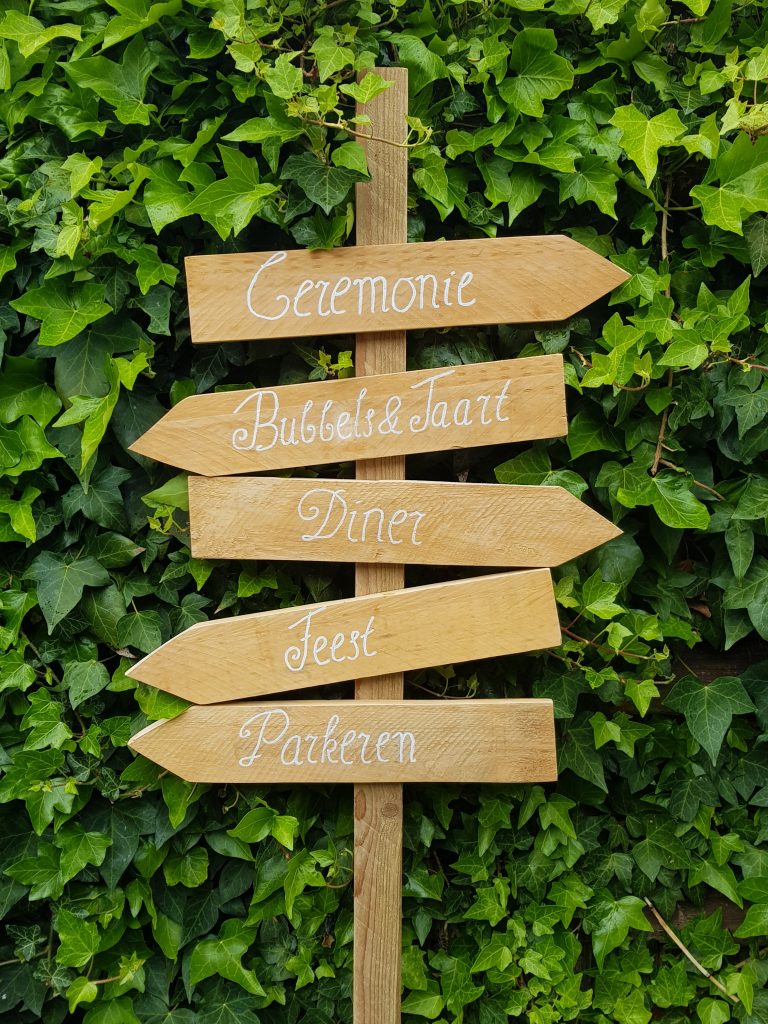 Ceremonie
Bubbels & Taart
Diner
Feest
Parkeren